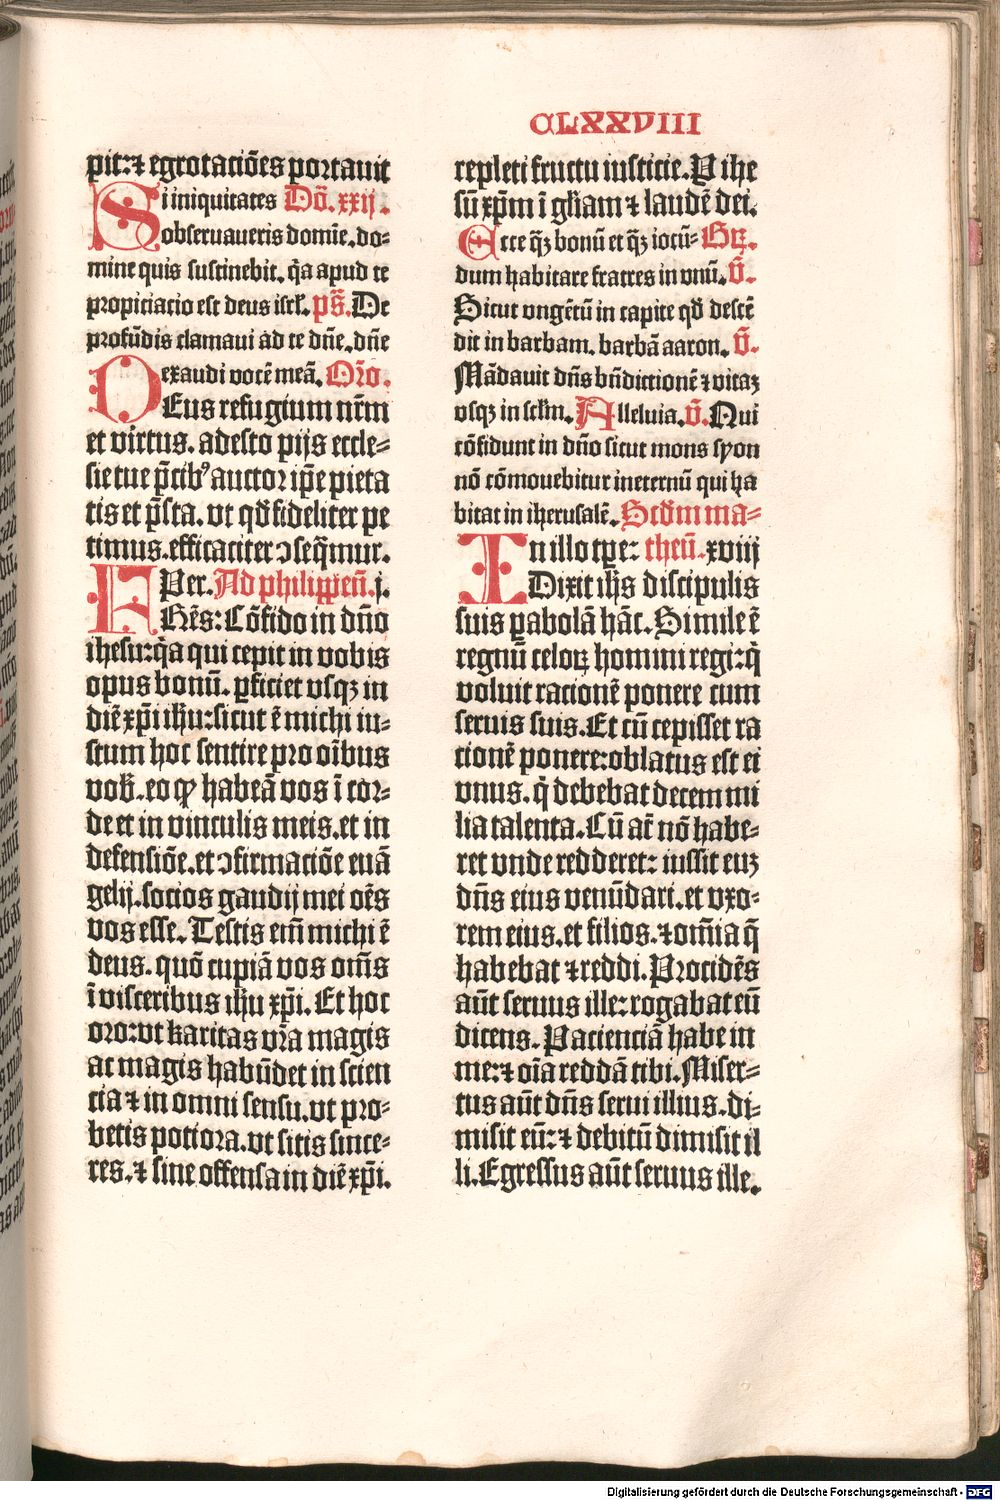 CLXXVIII
pit: ⁊ egrotaciões portauit
Si iniquitates Dō. xxij.
obseruaueris domīe. do⸗
mine quis sustinebit. q̄a apud te
propiciacio est deus isrl̄. p̄s. De
profūdis clamaui ad te dn̄e. dn̄e
exaudi vocē meā. Or̄o.
DEus refugium nr̄m
et virtus. adesto pijs eccle⸗
sie tue p̄cibꝰ auctor ip̄e pieta
tis et p̄sta. vt qd̄ fideliter pe
timus. efficaciter ꝯseq̄mur.
Per. Ad philippeñ. j.
FRēs: Cōfido in dn̄o
ihesu: q̄a qui cepit in vobis
opus bonū. ꝑficiet vsqꝫ in
diē xp̄i ih̄u: sicut ē michi iu⸗
stum hoc sentire pro oībus
vob̄. eo ꝙ habeā vos ī cor⸗
de et in vinculis meis. et in
defensiōe. et ꝯfirmaciōe euā
gelij. socios gaudij mei oēs
vos esse. Testis em̄ michi ē
deus. quō cupiā vos om̄s
ī visceribus ih̄u xp̄i. Et hoc
oro: vt karitas vr̄a magis
ac magis habūdet in scien
cia ⁊ in omni sensu. vt pro⸗
betis potiora. vt sitis since⸗
res. ⁊ sine offensa in diē xp̄i.
repleti fructu iusticie. P ihe
sū xp̄m ī gl̄iam ⁊ laudē dei.
Ecce q̄ꝫ bonū et q̄ꝫ iocū⸗ Gꝝ.
dum habitare fratres in vnū. v̄.
Sicut vngētū in capite qd̄ descē
dit in barbam. barbā aaron. v̄.
Mādauit dn̄s bn̄dictionē ⁊ vitaꝫ
vsqꝫ in sclm̄. Alleluia. v̄. Qui
cōfidunt in dn̄o sicut mons syon
nō cōmouebitur in eternū qui ha
bitat in iherusalē. Scd̄m ma⸗
In illo tꝑe: theū. xviij
Dixit ih̄s discipulis
suis ꝑabolā hāc. Simile ē
regnū celoꝝ homini regi: q̄
voluit racionē ponere cum
seruis suis. Et cū cepisset ra
cionē ponere: oblatus est ei
vnus. q̄ debebat decem mi
lia talenta. Cū aūt nō habe⸗
ret vnde redderet: iussit euꝫ
dn̄s eius venūdari. et vxo⸗
rem eius. et filios. ⁊ om̄ia q̄
habebat ⁊ reddi. Procidēs
aūt seruus ille: rogabat eū
dicens. Pacienciā habe in
me: ⁊ oīa reddā tibi. Miser⸗
tus aūt dn̄s serui illius. di⸗
misit eū: ⁊ debitū dimisit il
li. Egressus aūt seruus ille.
Digitalisierung gefördert durch die Deutsche Forschungsgemeinschaft - DFG